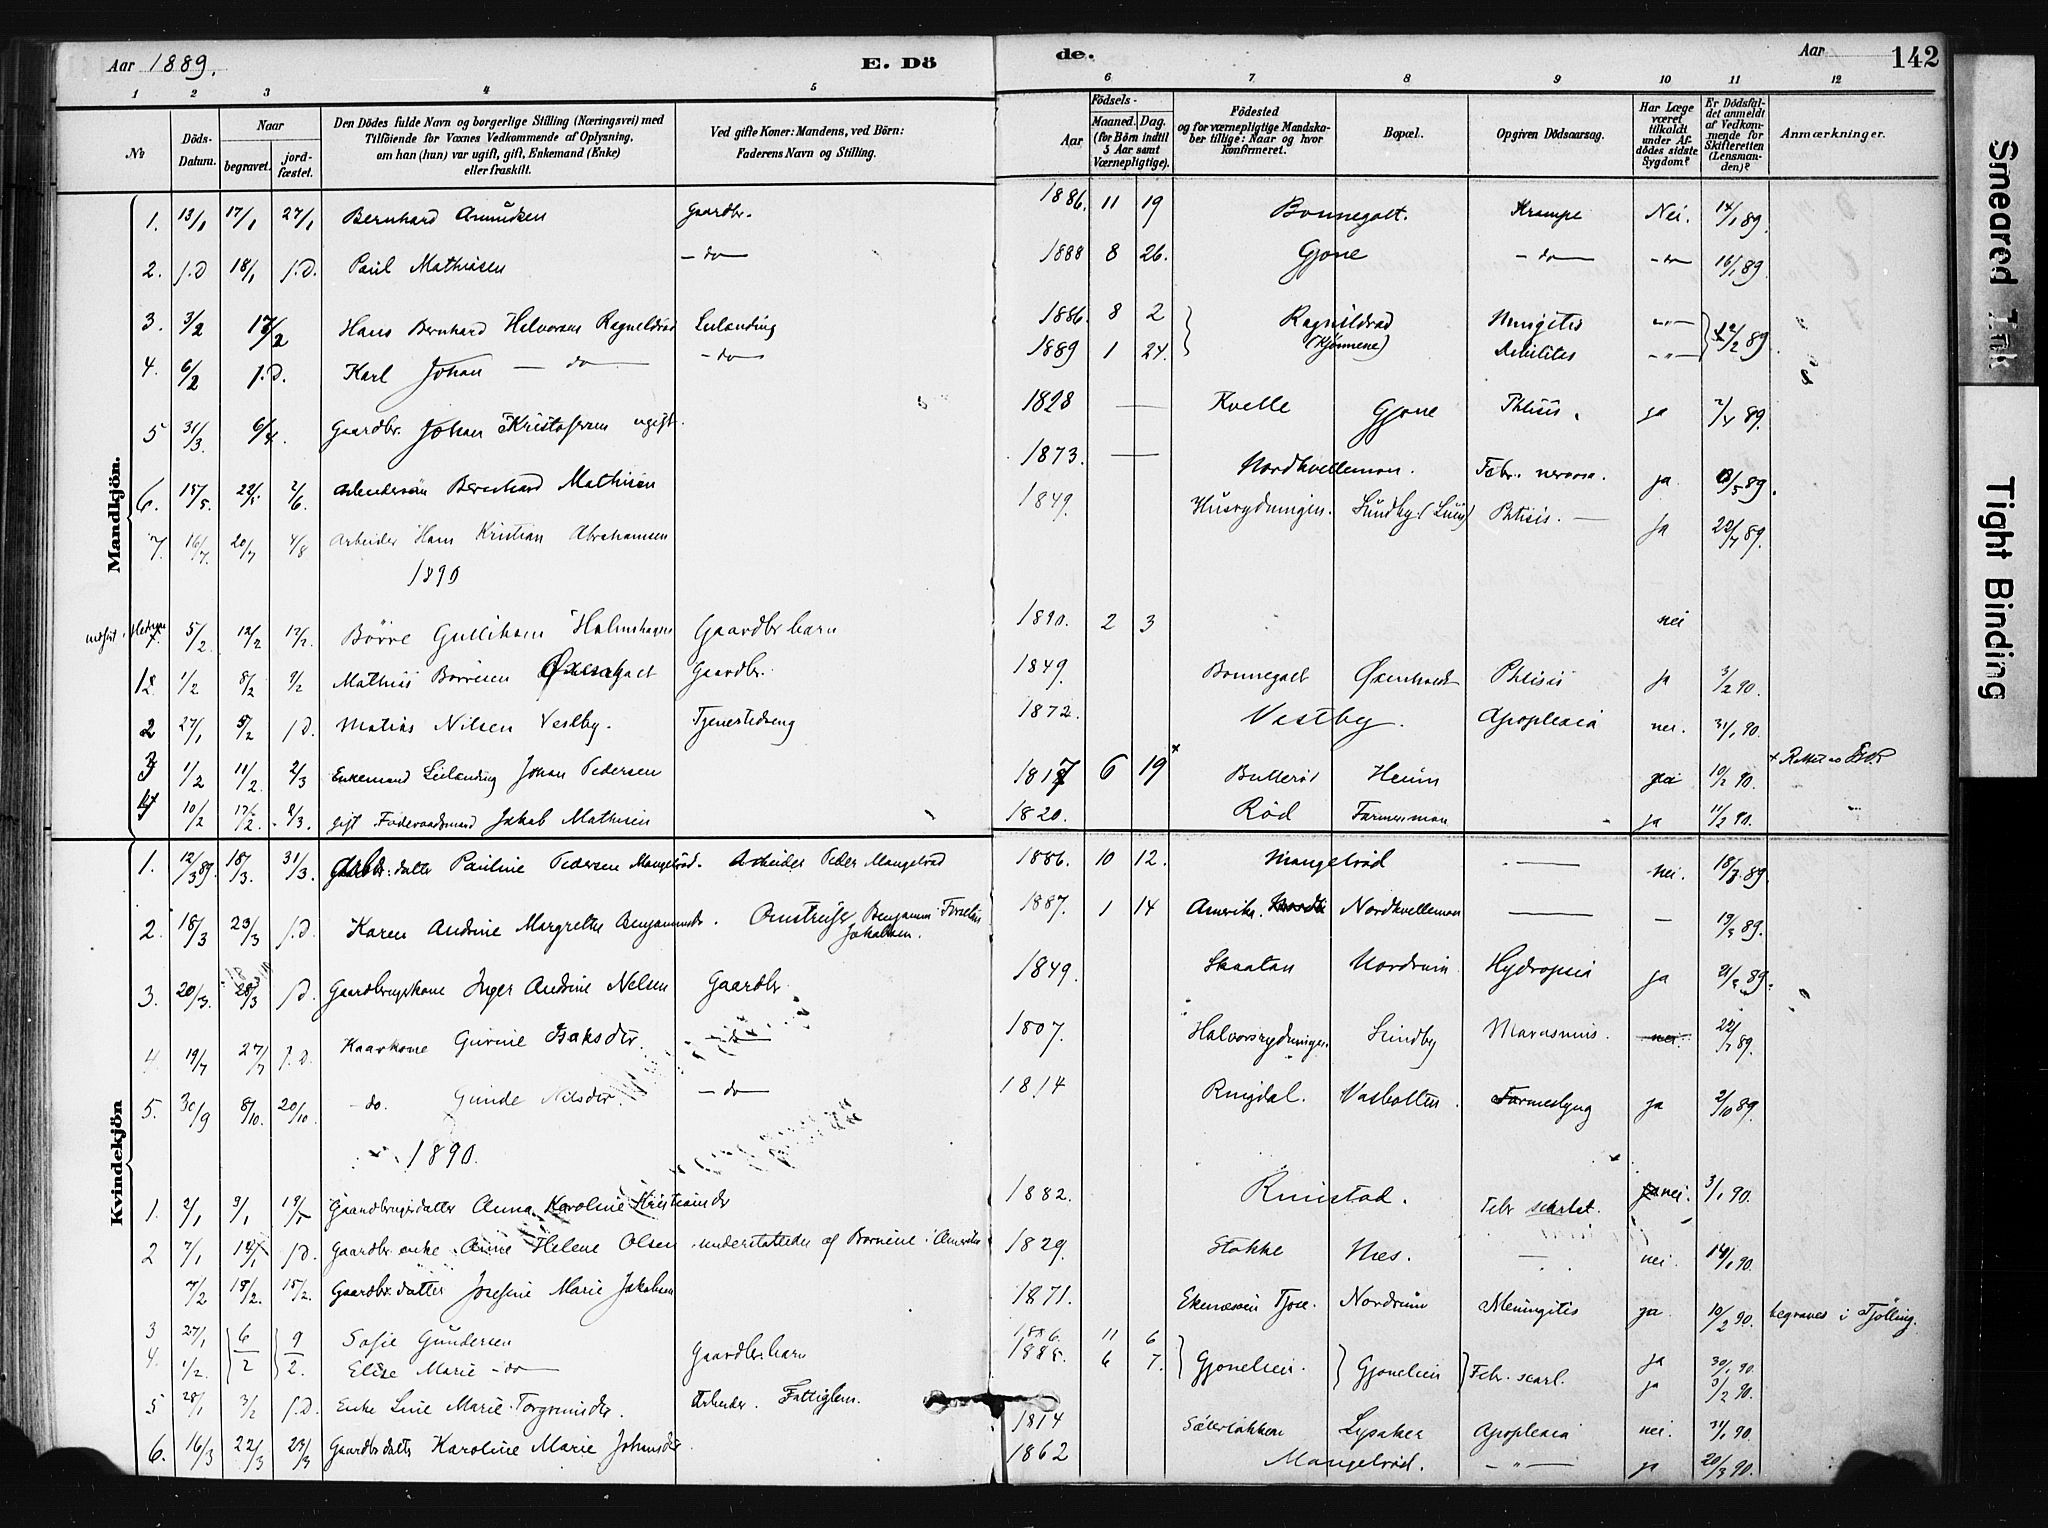 Aar 1889. E. Dö
de. Aar 142
1 2 3 4 5 6 7 8 9 10 11 12
No Döds-Datum. Naar begravet. jordfæstet. Den Dödes fulde Navn og borgerlige Stilling (Næringsvei) med Tilföiende for Voxnes Vedkommende af Oplysning, om han (hun) var ugift, gift, Enkemand (Enke) eller fraskilt. Ved gifte Koner: Mandens, ved Börn: Faderens Navn og Stilling. Födsels- Aar Maaned. Dag. (for Börn indtil 5 Aar samt Værnepligtige). Födested og for værnepligtige Mandskaber tillige: Naar og hvor konfirmeret. Bopæl. Opgiven Dödsaarsag. Har Læge været tilkaldt under Afdödes sidste Sygdom? Er Dödsfaldet anmeldt af Vedkommende for Skifteretten (Lensmanden)? Anmærkninger.
Mandkjön.
1. 13/1 17/1 27/1 Bernhard Amundsen Gaardbr. 1886. 11 19 Bonnegolt. Krampe Nei. 14/1 89.
2. s.D 18/1 s.D. Paul Mathisen - do - 1888 8 26. Gjone - do - - do 16/1 89.
3. 3/2 13/2 Hans Bernhard Halvorsen Leilænding 1886. 8 2 12/2 89.
4. 6/2 s.D. Karl Johan - do - - do - 1889 1 24. Debilites
5 31/3. 6/4. Gaardbr. Johan Kristofersen ugift. 1828 Kvelle Gjone Phtisis. ja 2/4 89.
6. 15/5. 22/5. 2/6 Bernhard Mathisen 1873. Nordkvellemoen. Febr. nervosa. ja 89.
7. 16/7. 20/7 4/8 Arbeider Hans Kristian Abrahamsen 1849. Husrydningen. Sundby Phtisis. ja 22/7 89.
1890
5/2 12/2 12/2. Børre Gulliksen Gaardbr barn 1890. 2 3 nei
1/2 8/2 9/2 Mathis Børresen Gaardbr. 1849. Bonnegolt Phtisis ja 3/2 90.
2 27/1 5/2 s.D. Matias Nilsen Vestby. Tjenestedreng 1872. Vestby. Apoplexia nei. 31/1 90.
3 1/2 11/2 2/3 Enkemand Leilænding Johan Pedersen 1817 6 19 + Heum 10/2 90.
4 10/2 17/2. 2/3. gift Föderaadsmand Jakob Mathisen 1820. Röd Farmenmoen ja 11/2 90.
Kvindekjön
1. 12/3 89. 18/3. 31/3. datter Pauline Pedersen Mangelröd. Arbeider Peder Mangelröd 1886. 10 12. Mangelröd nei. 18/3 89.
2. 18/3 23/3 s.D. Karen Andrine Margrethe Benjaminsdr. Benjamin Jakobsen. 1887. 1 14 Amerika. Nordkvellemoen 19/3 89.
3. 20/3. 28/3 s.D. Gaardbrugerkone Inger Andrine Nilsen Gaardbr. 1849. Skaatan Nordrum Hydropsia ja 21/3 89.
4 19/7 27/7 s.D. Kaarkone Gurine Isaksdr. - do - 1807. Halvorsrydningen. Sundby Marasmus. nei. 22/7 89.
5. 30/9 8/10. 20/10 - do. Gunde Nilsdtr. - do - 1814 Ringdal. Vasbotten. ja 2/10 89.
1890.
1. 2/1 9/1 19/1 Gaardbrugerdatter Anna Karoline Kristiansdr 1882. Rimstad. Febr scarlat. nei. 3/1 90.
2 7/1 14/1 s.D. Gaardbr. enke Anne Helene Olsen understøttedes af Børnene i Amerika 1829. Stokke Næs. nei. 14/1 90.
7/2 15/2. 15/2. Gaardbr. datter Josefine Marie Jakobsen 1871. Tjose. Nordrum Meningitis ja. 10/2 90. begraves i Tjölling.
3 27/1 6/2 9/2. Sofie Gundersen Gaardbr. barn 1886. 11 6 Gjonelien. Gjonelien Febr. scarl. ja 30/1 90.
4. 1/2. Elise Marie - do - 1885. 6 7. ja 3/2 90.
5 28/1 3/2 s.D. Enke Line Marie Torgrimsdr. Arbeider. Fattiglem. 1814 Lysaker Apoplexia nei. 31/1 90.
6. 16/3 22/3 23/3 Gaardbr datter Karoline Marie Johansdr. 1862 Mangelröd. - " - ja 20/3 90.
Smeared Ink
Tight Binding